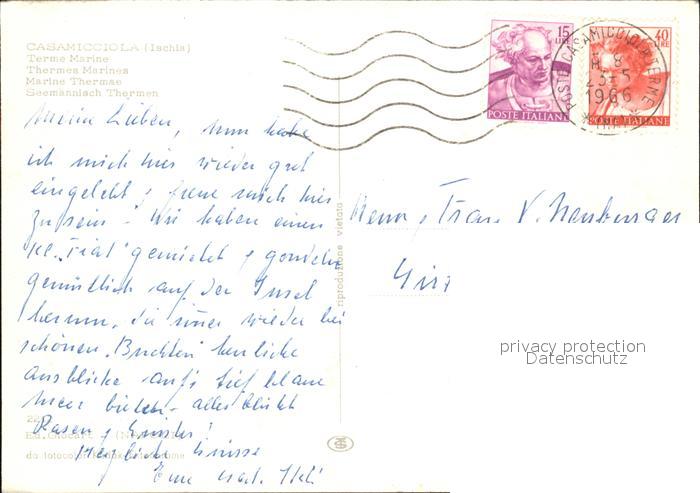 CASAMICCIOLA (Ischia)
Terme Marine
Thermes Marines
Marine Thermae
Seemännisch Thermen
Meine Lieben, nun habe
ich mich hier wieder gut
eingelebt & freue mich hier
zu sein. Wir haben einen
kl. Fiat gemietet & gondeln
gemütlich auf der Insel
herum, die immer wieder bei
schönen Buchten herrliche
Ausblicke aufs tief blaue
Meer bieten. alles blüht
Rasen & Ginster!
Herzliche Grüsse
Eure
riproduzione vietata
15 LIRE
POSTE ITALIANE
40 LIRE
POSTE ITALIANE
CASAMICCIOLA TERME
H. 8
23-5
1966
Herrn & Frau V. Neuburger
privacy protection
Datenschutz